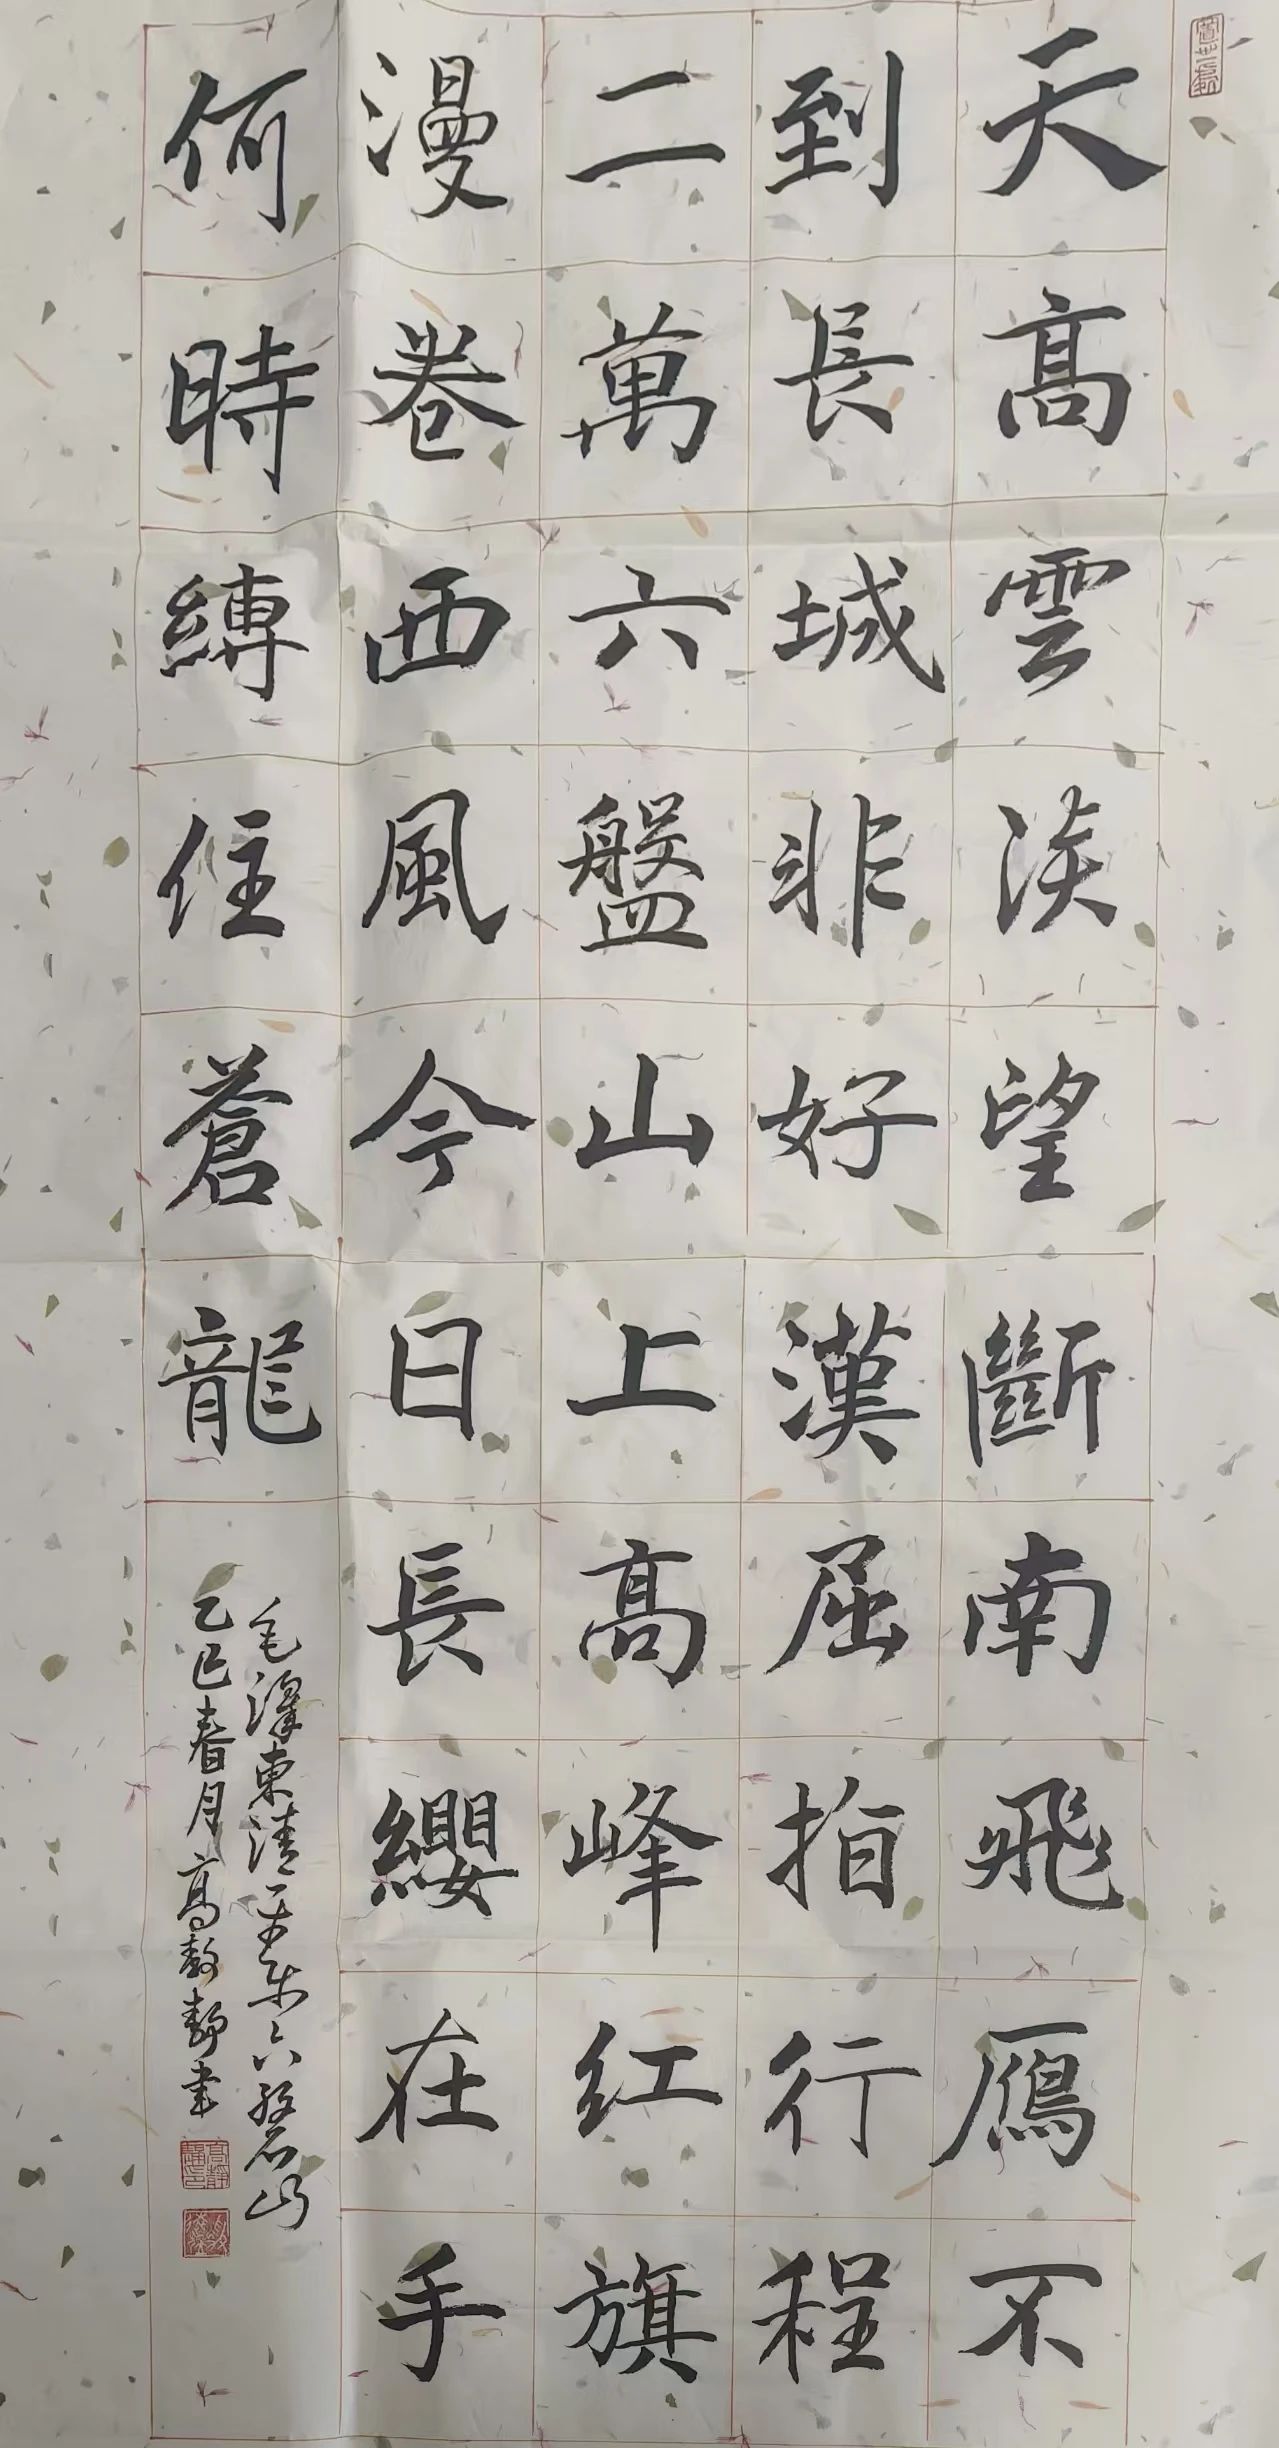 天高雲淡望斷南飛雁不
到長城非好漢屈指行程
二萬六盤山上高峰红旗
漫卷西風今日長纓在手
何時縛住蒼龍
毛澤東清平乐六盤山
乙巳春月高馨静书